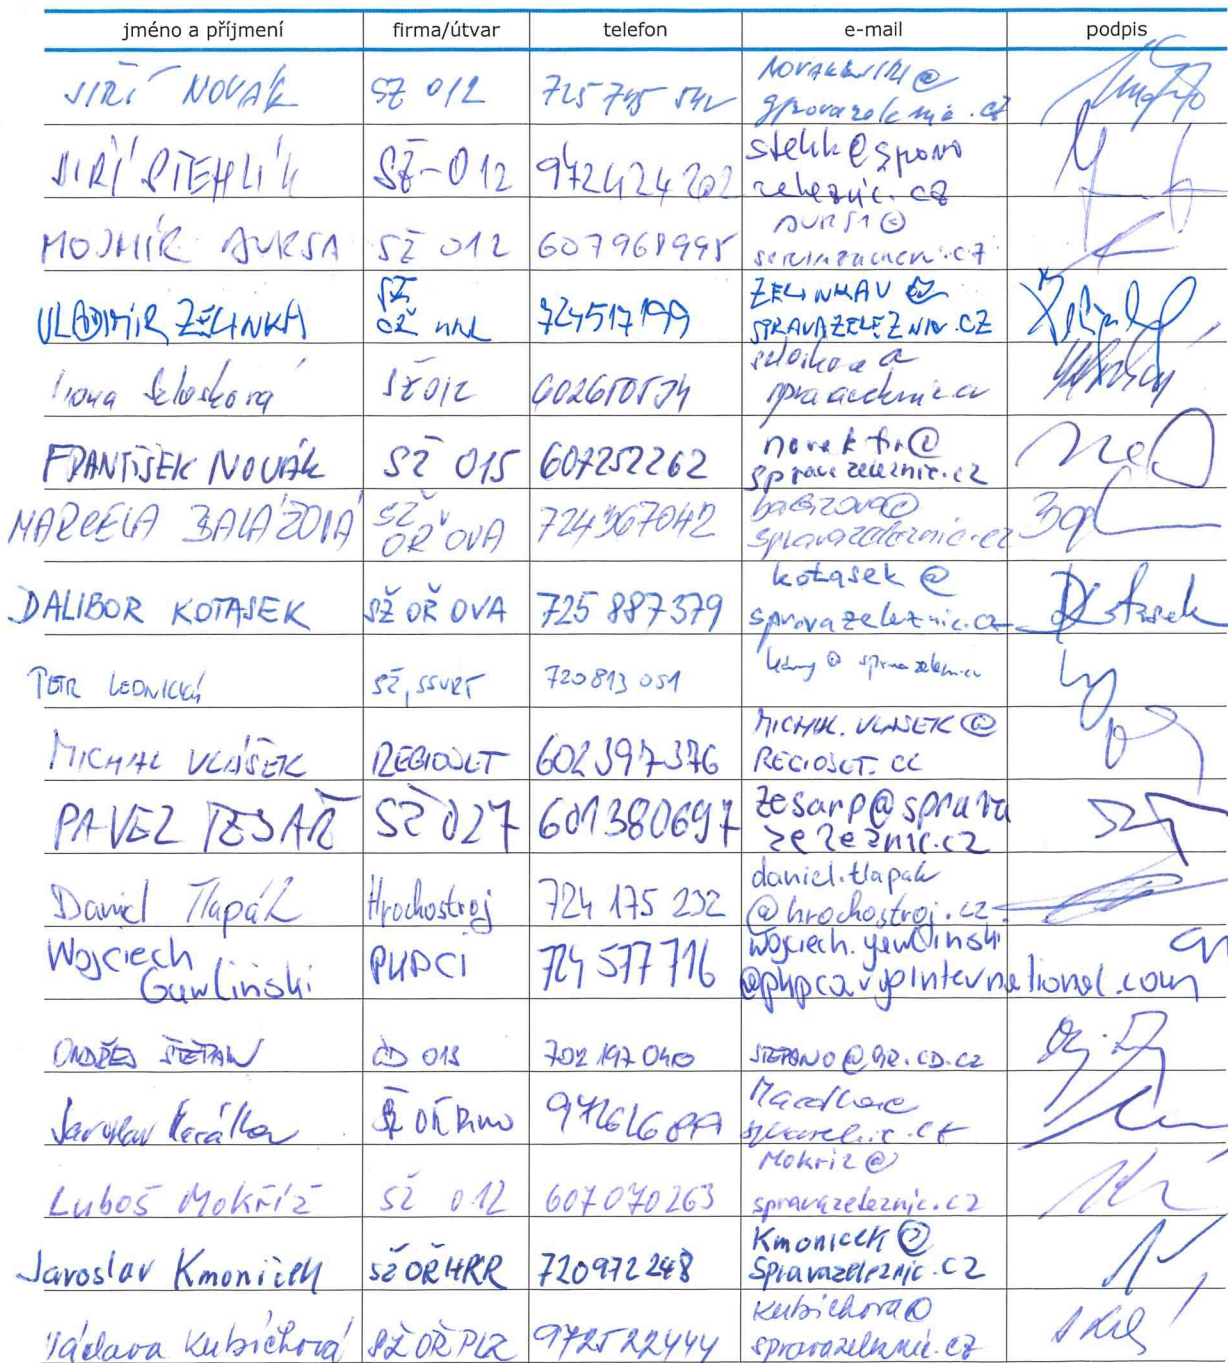 jméno a příjmení firma/útvar telefon e-mail podpis
JIŘÍ NOVÁK SŽ 012 725 745 542 NOVAKJIRI@
spravazeleznic.cz
JIŘÍ STEHLÍK SŽ-012 972424202 stehlik@sprava
zeleznic.cz
MOJMÍR SŽ 012 607968995
VLADIMÍR ZELINKA SŽ 724517199 ZELINKAV @
OŘ SPRAVAZELEZNIC.CZ
SŽ 012 602610534
FRANTIŠEK NOVÁK SŽ 015 607252262 novakfr@
spravazeleznic.cz
MARCELA BALÁŽOVÁ SŽ 724367042 balazova@
OŘ OVA spravazeleznic.cz
DALIBOR KOTASEK SŽ OŘ OVA 725 887379 kotasek @
spravazeleznic.cz
PETR LEDNICKÝ SŽ, SSVRT 720813 051
MICHAL VLÁŠEK REGIOJET 602397376 MICHAL.VLASEK@
REGIOJET.CZ
PAVEL TESAŘ SŽ 027 601380697 tesarp@sprava
zeleznic.cz
Daniel Tlapák Hrochostroj 724 175 232 daniel.tlapak
@hrochostroj.cz
Wojciech PKPCI 724 577 716 wojciech.gawlinski
Gawlinski @pkpcargointernational.com
ONDŘEJ ŠTĚPÁN ČD 018 702 197 040 STEPANO@GR.CD.CZ
Jaroslav
Luboš Mokříž SŽ 012 607070263 Mokriz@
spravazeleznic.cz
Jaroslav Kmoníček SŽ OŘ HKR 720972248 Kmonicek@
Spravazeleznic.cz
Václava Kubíchová SŽ OŘ PLZ 972522444 Kubichova@
spravazeleznic.cz